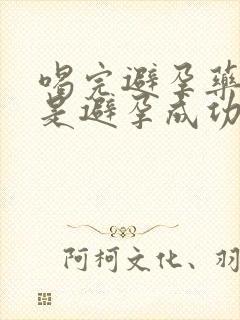 喝完避孕药
是避孕成功
阿柯文化、羽